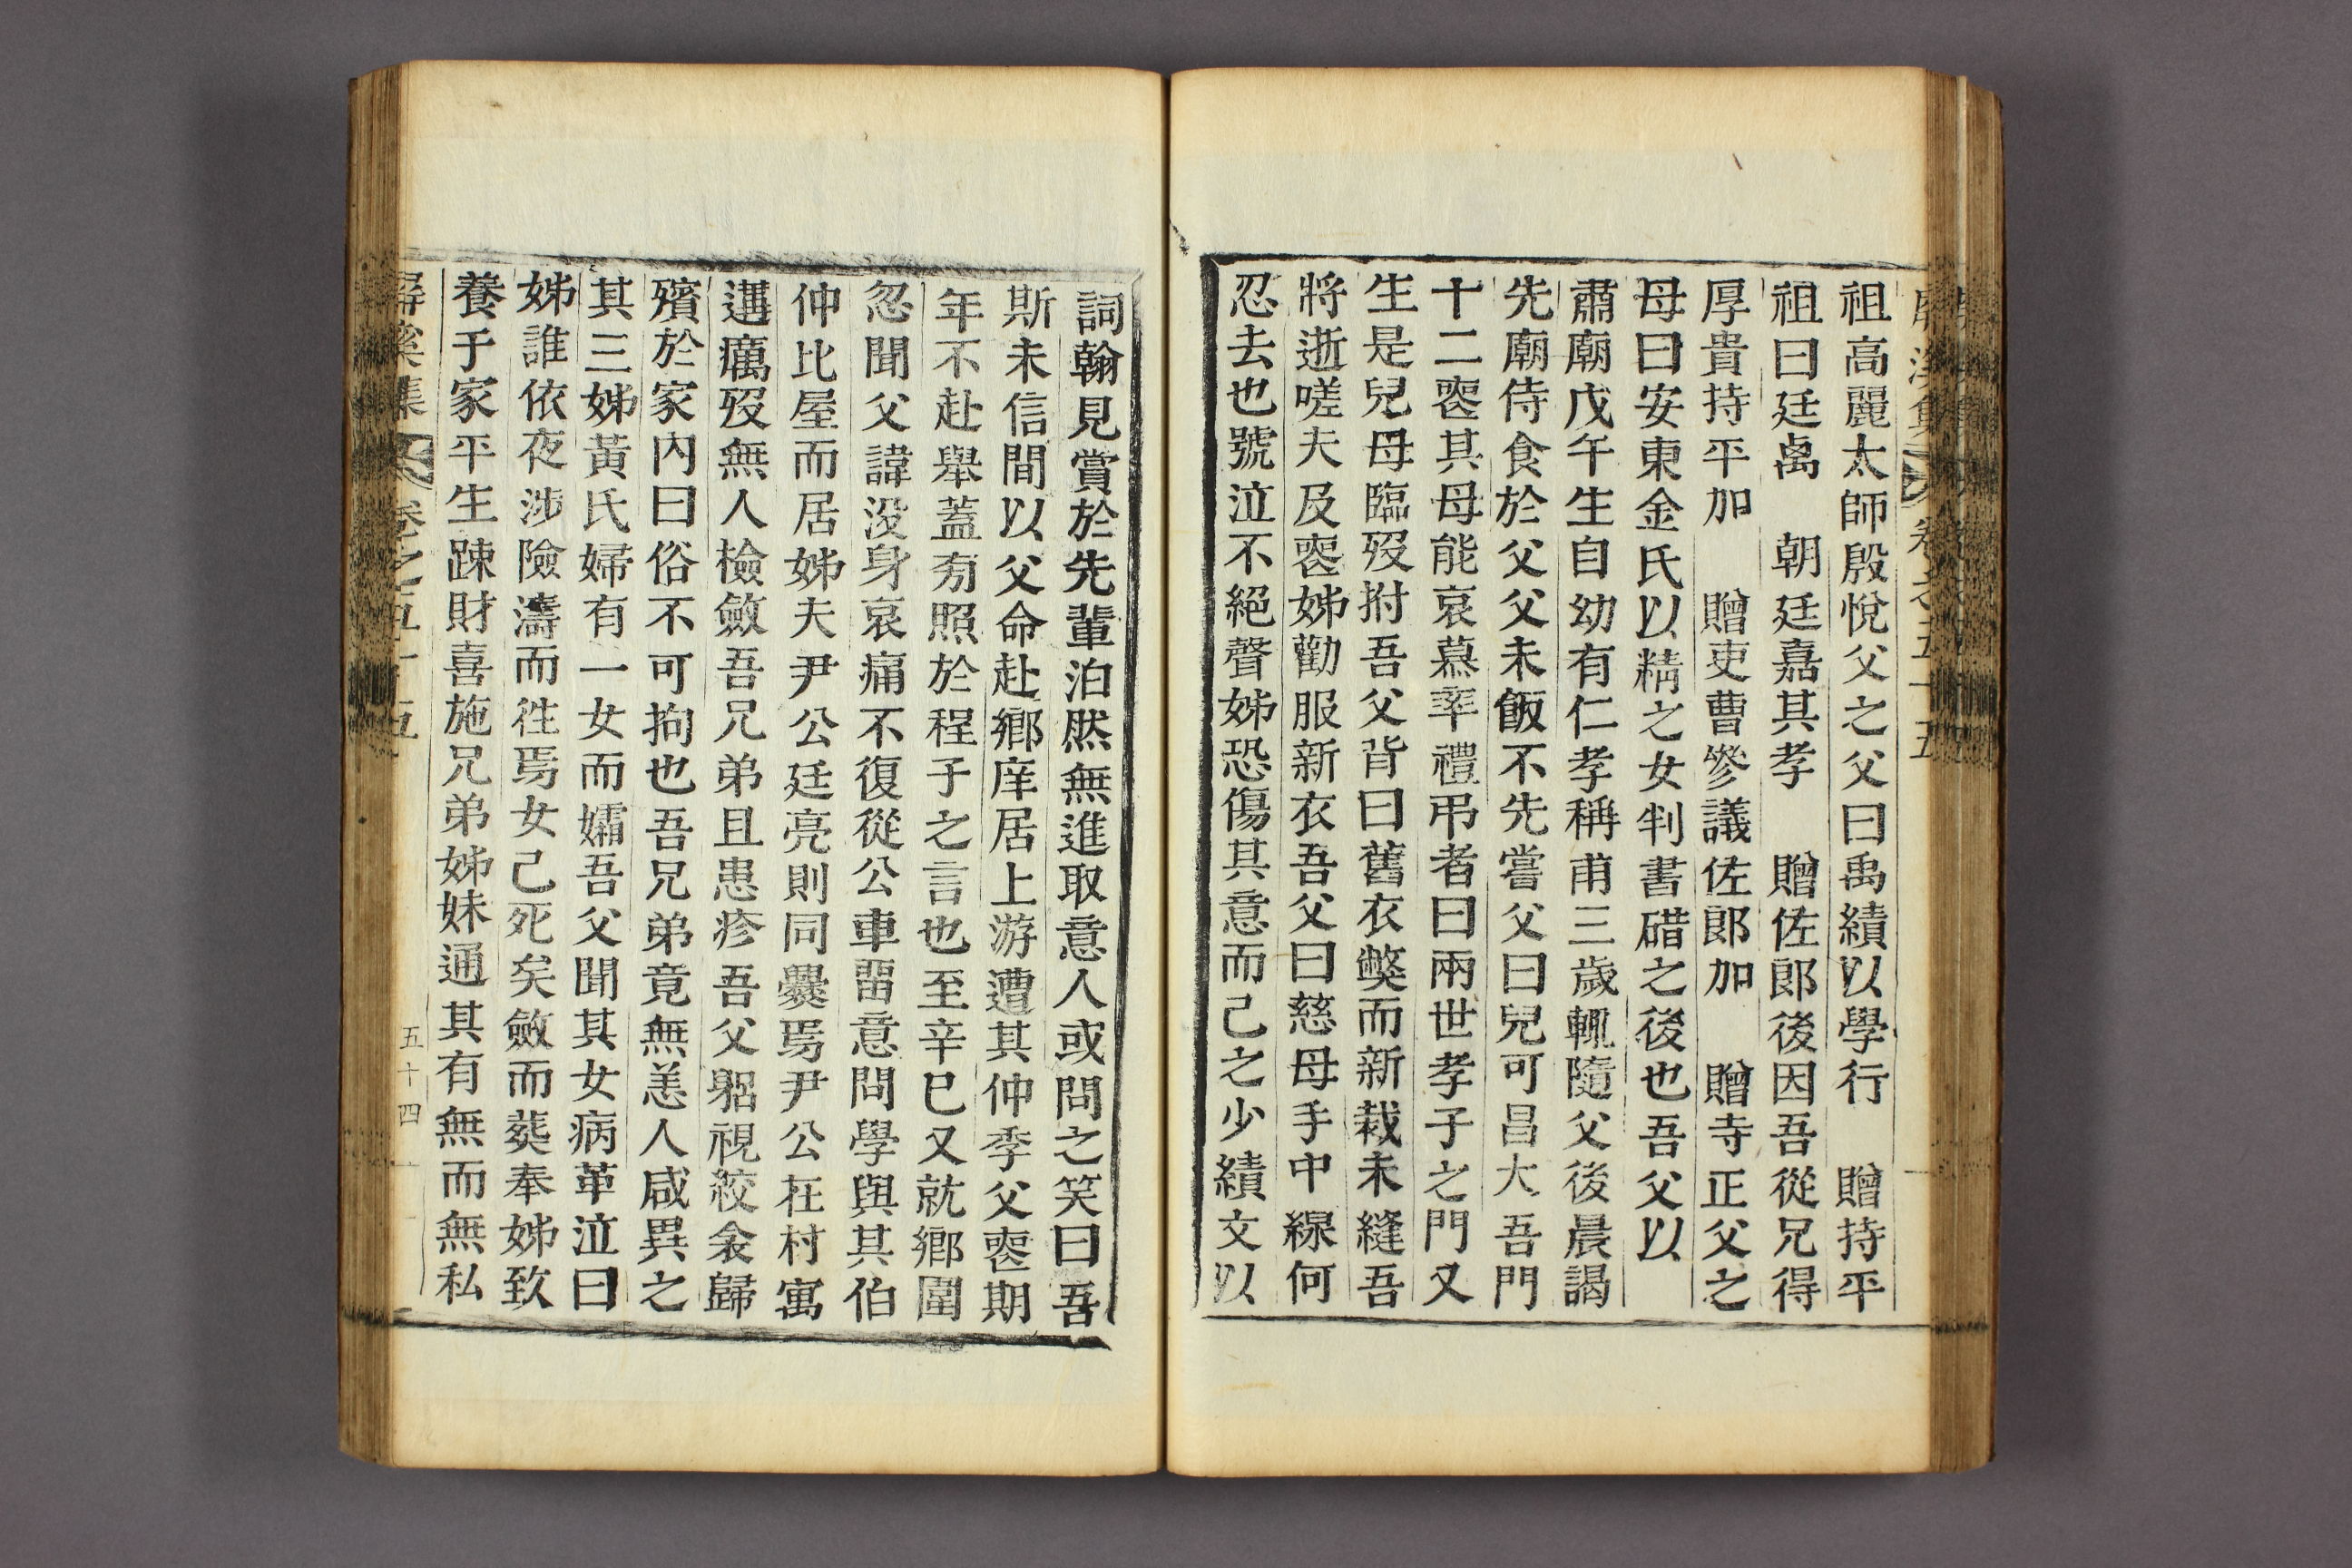 祖高麗太師殷悅父之父曰禹績以學行　贈持平
祖曰廷卨　朝廷嘉其孝　贈佐郎後因吾從兄得
厚貴持平加　贈吏曹參議佐郎加　贈寺正父之
母曰安東金氏以精之女判書碏之後也吾父以
肅廟戊午生自幼有仁孝稱甫三歲輒隨父後晨謁
先廟侍食於父父未飯不先嘗父曰兒可昌大吾門
十二喪其母能哀慕率禮弔者曰兩世孝子之門又
生是兒母臨歿拊吾父背曰舊衣獘而新裁未縫吾
將逝嗟夫及喪姊勸服新衣吾父曰慈母手中線何
忍去也號泣不絕聲姊恐傷其意而已之少績文以
詞翰見賞於先輩泊然無進取意人或問之笑曰吾
斯未信間以父命赴鄉庠居上游遭其仲季父喪期
年不赴舉蓋有照於程子之言也至辛巳又就鄉圍
忽聞父諱没身哀痛不復從公車留意問學與其伯
仲比屋而居姊夫尹公廷亮則同爨焉尹公在村寓
遘癘歿無人檢斂吾兄弟且患疹吾父躬視絞衾歸
殯於家內曰俗不可拘也吾兄弟竟無恙人咸異之
其三姊黃氏婦有一女而孀吾父聞其女病革泣曰
姊誰依夜涉險濤而徃焉女已死矣斂而葬奉姊致
養于家平生踈財喜施兄弟姊妹通其有無而無私
屏溪集　卷之五十五　五十四